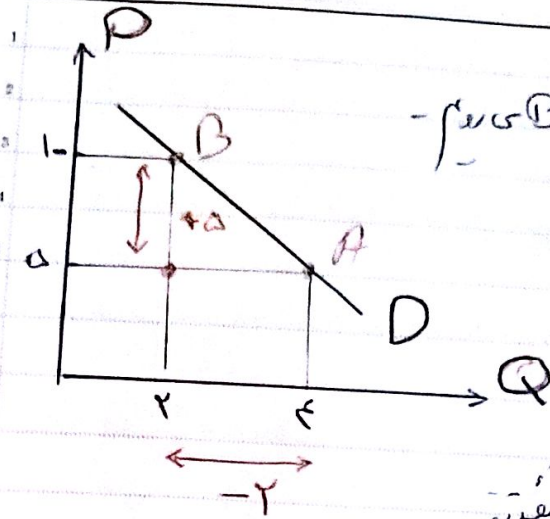 P
۱۰ B
+۵
۵ A
D
Q
۲ ۴
-۲